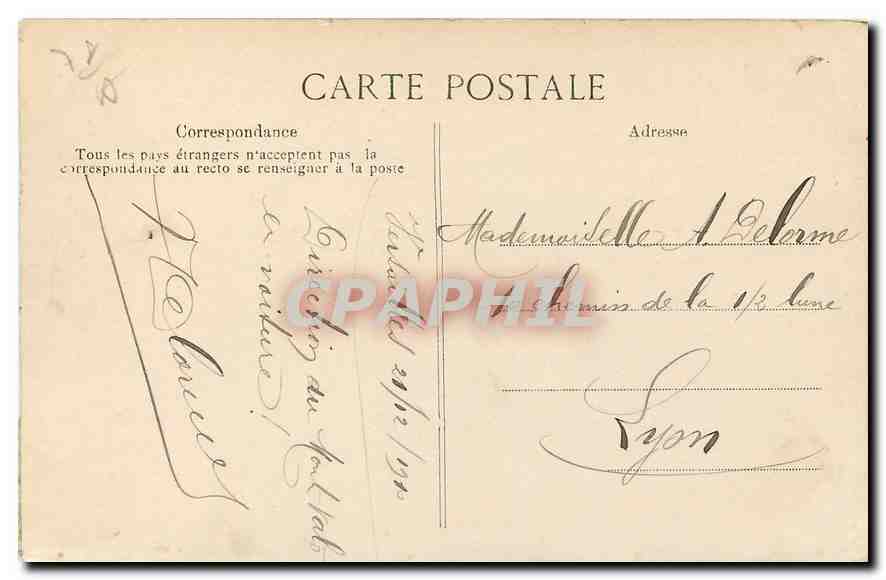 CARTE POSTALE
Correspondance
Tous les pays étrangers n'acceptent pas la
correspondance au recto se renseigner à la poste
Versailles 21/12/1910
Direction du Mont Val
en voiture!
Adresse
Mademoiselle A. Delorme
chemin de la 1/2 lune
Lyon
CPAPHIL